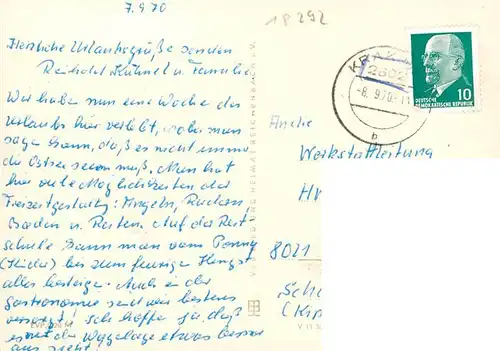 7.9.70
1P 292
Herzliche Urlaubsgrüße senden
Reinhold Kühnel u. Familie.
Wir haben nun eine Woche des
Urlaubs hier verlebt, wobei man
sagen kann, daß es nicht immer
die Ostsee sein muß. Man hat
hier viele Möglichkeiten der
Freizeitgestaltg: Angeln, Rudern,
Baden u. Reiten. Auf der Reit-
schule kann man vom Ponny
(Kinder) bis zum feurigen Hengst
alles besteigen. Auch in der
Gastronomie sind wir bestens
versorgt! Ich hoffe ja, daß
es mit der
aus sieht.
KRAK
2602
-8.9.70-11
b
10
DEUTSCHE
DEMOKRATISCHE REPUBLIK
An die
Werkstattleitung
8021